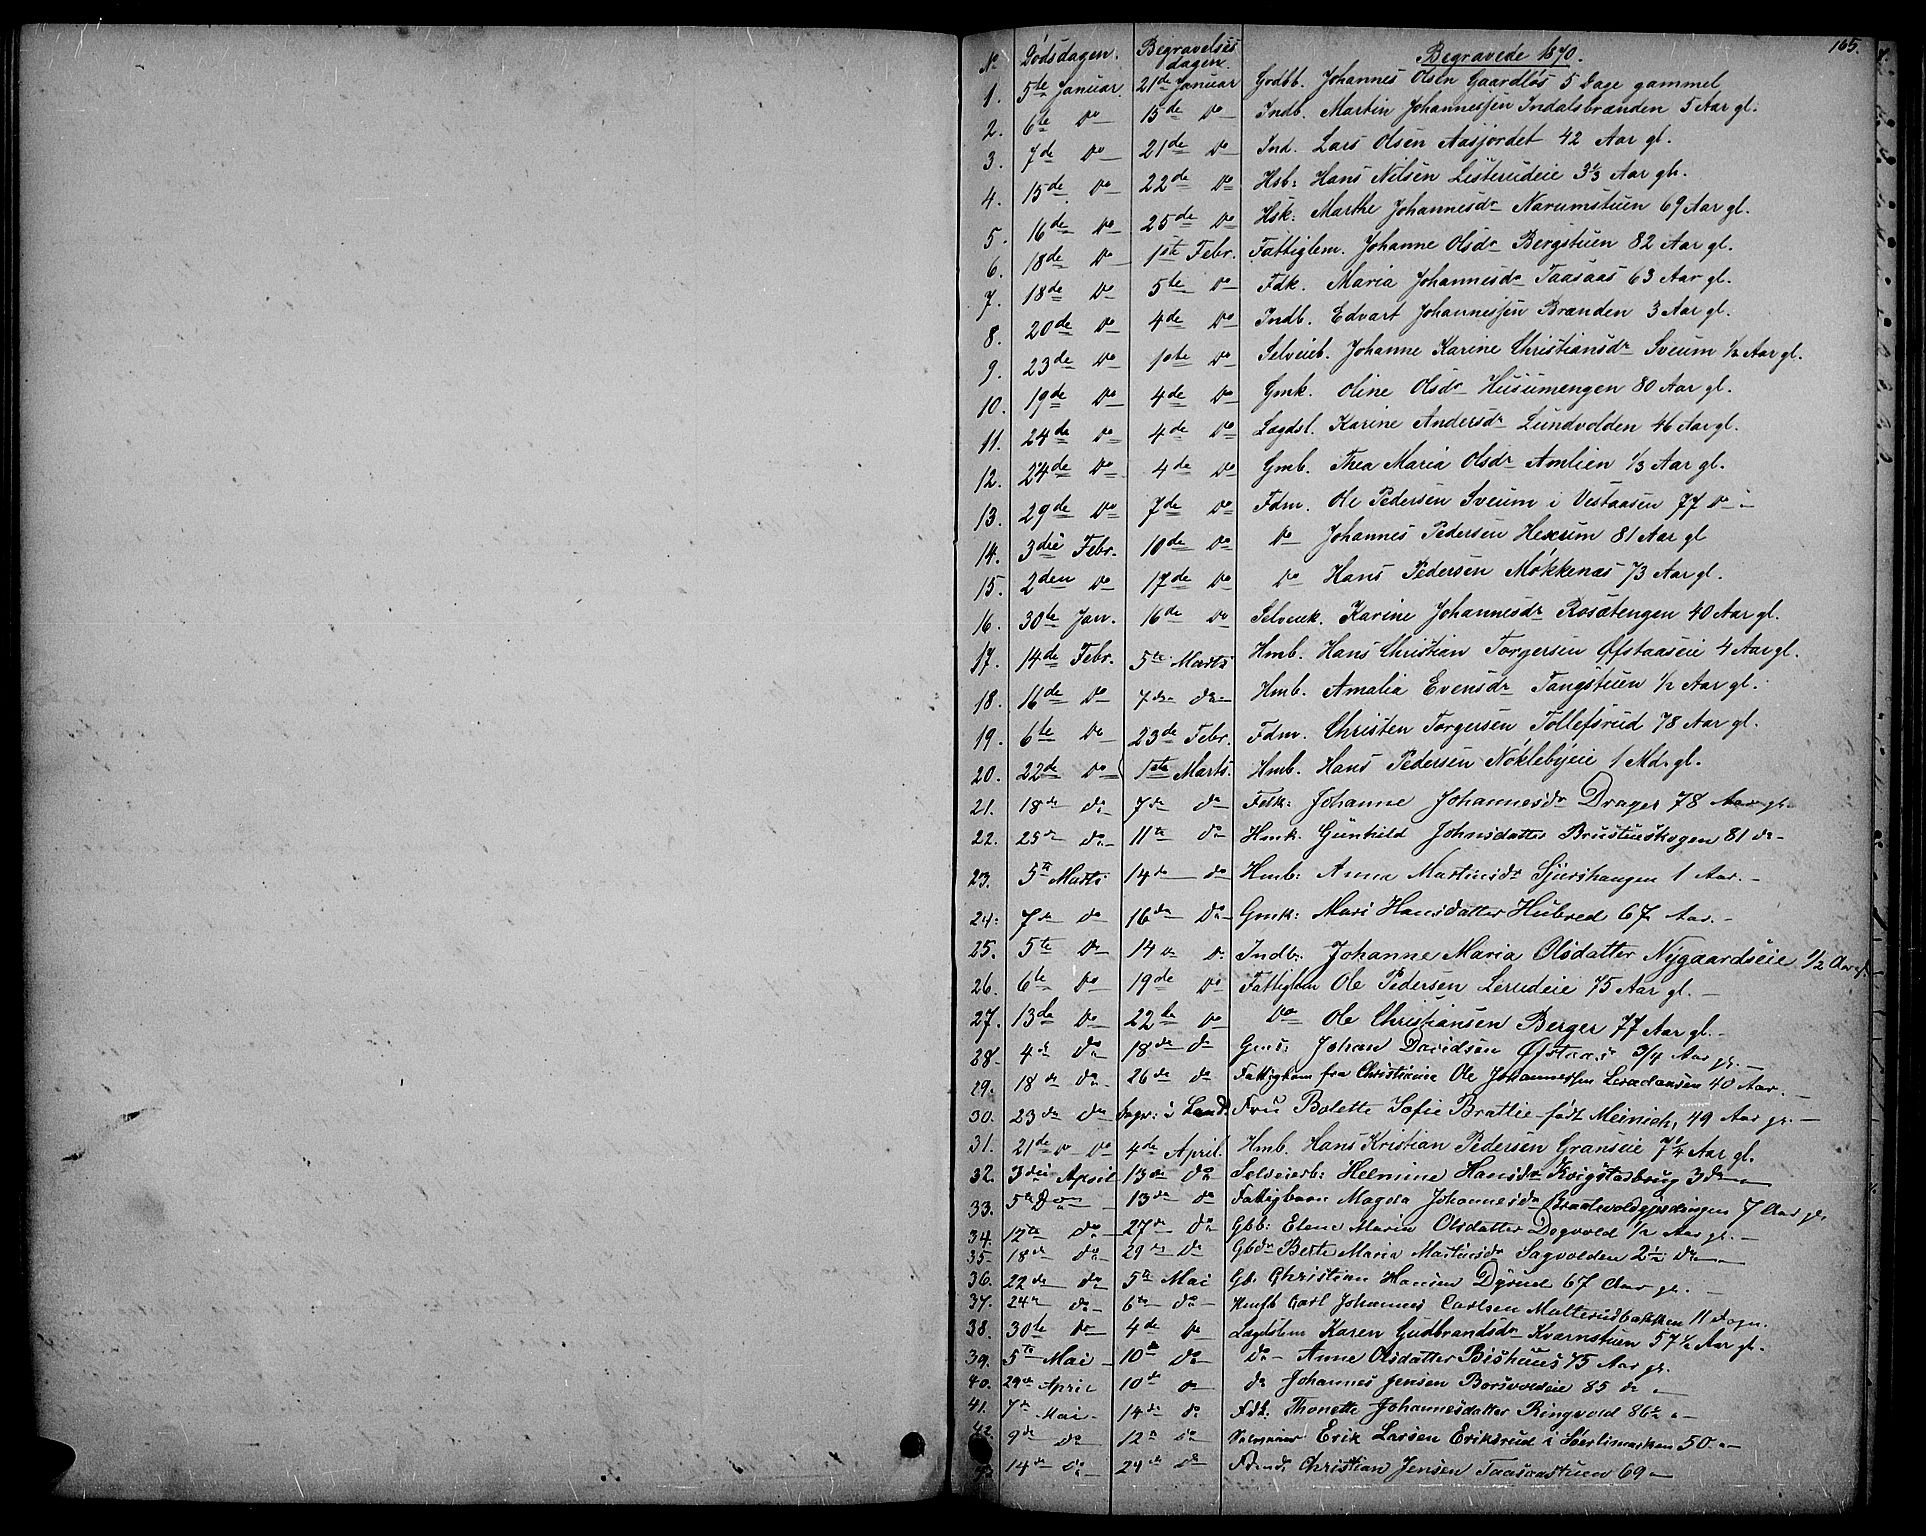 165.
No Dödsdagen. Begravelsesdagen. Begravede 1870.
1. 5te Januar. 21de Januar Grdbb. Johannes Olsen Gaardløs 5 Dage gammel
2. 6te Do 15de Do Indb. Martin Johannessen Indalsbrænden 5 Aar gl.
3. 7de Do 21de Do Ind. Lars Olsen Aasjordet 42 Aar gl.
4. 15de Do 22de Do Hsb: Hans Nilsen Listerudeie 3⅓ Aar gl.
5. 16de Do 25de Do Hsk: Marthe Johannesdr Narumstuen 69 Aar gl.
6. 18de Do 1ste Febr. Fattiglem. Johanne Olsdr Bergstuen 82 Aar gl.
7. 18de Do 5te Do Fdk. Maria Johannesdr Taasaas 63 Aar gl.
8. 20de Do 4de Do Indb. Edvart Johannessen Brænden 3 Aar gl.
9. 23de Do 10te Do Selveieb. Johanne Karine Christiansdr Sveum ½ Aar gl.
10. 19de Do 4de Do Gmk. Oline Olsdr Husumengen 80 Aar gl.
11. 24de Do 4de Do Lægdsl. Karine Andersdr Lundvolden 46 Aar gl.
12. 24de Do 4de Do Gmb. Thea Maria Olsdr Amlien ⅓ Aar gl.
13. 29de Do 7de Do Fdm. Ole Pedersen Sveum i Vestaasen 77 Do
14. 3die Febr. 10de Do Do Johannes Pedersen Hexum 81 Aar gl
15. 2den Do 17de Do Do Hans Pedersen Møkkenæs 73 Aar gl.
16. 30te Jan. 16de Do Selveiek. Karine Johannesdr Rosætengen 40 Aar gl.
17. 14de Febr. 5te Marts Hmb. Hans Christian Torgersen Øfstaaseie 4 Aar gl.
18. 11de Do 7de do Hmb. Amalia Evensdr Tangstuen ½ Aar gl.
19. 6te Do 23de Febr. Fdm. Christen Torgersen Tollefsrud 78 Aar gl.
20. 22de Do 1ste Marts. Hmb. Hans Pedersen Nøklebyeie 1 Md. gl.
21. 18de do 7de do Fdk: Johanne Johannesdr Drager 78 Aar gl.
22. 25de do 11te do Hmk. Gunhild Johnsdatter Brustueskogen 81 do
23. 5te Marts 14de do Hmb: Anna Martinsdr 1 Aar.
24. 7de do 16de Do Gmk: Mari Hansdatter Hubred 67 Aar.
25. 5te Do 14de Do Indb: Johanne Maria Olsdatter Nygaardseie ½ Aar gl.
26. 6te Do 19de Do Fattiglem Ole Pedersen Lerudeie 75 Aar gl.
27. 13de Do 22de Do Do Ole Christiansen Berger 77 Aar gl.
28. 4de do 18de do Gms: Johan Davidsen Øfstaas ¾ Aar gl.
29. 18de do 26de do Fattiglem fra Christiania Ole Johannessen 40 Aar.
30. 23de do Begr: i Land. Fru Bolette Sofie Brattie født Meinich, 49 Aar gl.
31. 21de Do 4de April. Hmb. Hans Kristian Pedersen Granseie 7¼ Aar gl.
32. 3die April 13de do Selveierb: Helmine Hansdr Kvigstadbrug 3 do
33. 5te Do 13de do Fattigbarn Magda Johannesdr 7 Aar gl.
34. 12te do 27de do Gbb: Elene Maria Olsdatter Dogvold ½ Aar gl.
35. 18de do 29de do Gbdr Berte Maria Martinsdr Sagvolden 2½ do
36. 22de do 5te Mai Gb. Christian Hansen Dyrud 67 Aar gl.
37. 24de do 6te do Carl Johannes Carlsen Malterudbakken 11 Dage.
38. 30te Do 4de Do Lægdslem Karen Gudbrandsdr Kvernstuen 57½ Aar gl.
39. 5te Mai 10de Do do Anne Olsdatter Bishuus 75 Aar gl.
40. 29de April 10de do do Johannes Jensen Borsvoldeie 85 do
41. 7de Mai 14de do Fdk. Thonette Johannesdatter Ringvold 86½
42. 9de do 12te do Erik Larsen Eriksrud i Sørlimarken 50
43. 14de do 24de do Christian Jensen Taasaastuen 69